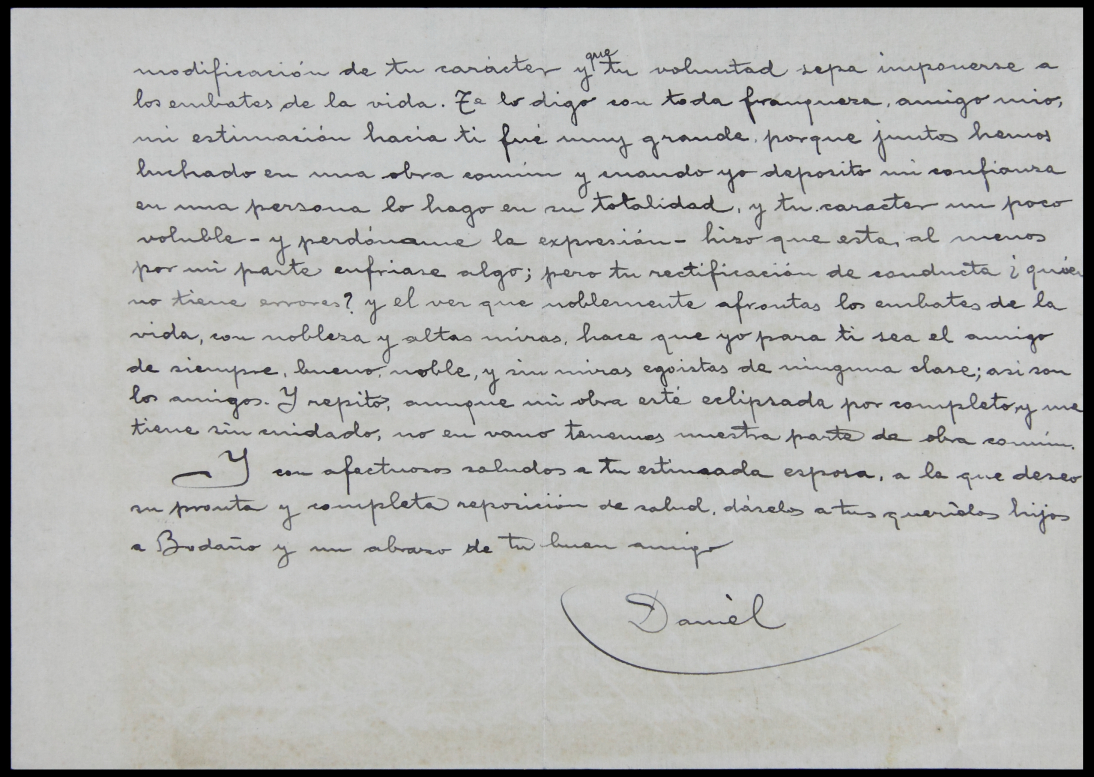 modificación de tu carácter y que tu voluntad sepa imponerse a
los embates de la vida. Te lo digo con toda franqueza, amigo mio,
mi estimación hacia ti fué muy grande, porque juntos hemos
luchado en una obra común y cuando yo deposito mi confianza
en una persona lo hago en su totalidad, y tu caracter un poco
voluble - y perdóname la expresión - hizo que esta, al menos
por mi parte enfriase algo; pero tu rectificación de conducta ¿quién
no tiene errores? y el ver que noblemente afrontas los embates de la
vida, con nobleza y altas miras, hace que yo para ti sea el amigo
de siempre, bueno, noble, y sin miras egoistas de ninguna clase; asi son
los amigos. Y repito, aunque mi obra esté eclipsada por completo, y me
tiene sin cuidado, no en vano tenemos nuestra parte de obra común.
Y con afectuosos saludos a tu estimada esposa, a la que deseo
su pronta y completa reposición de salud, dáselos a tus queridos hijos
a Bodaño y un abrazo de tu buen amigo
Danièl